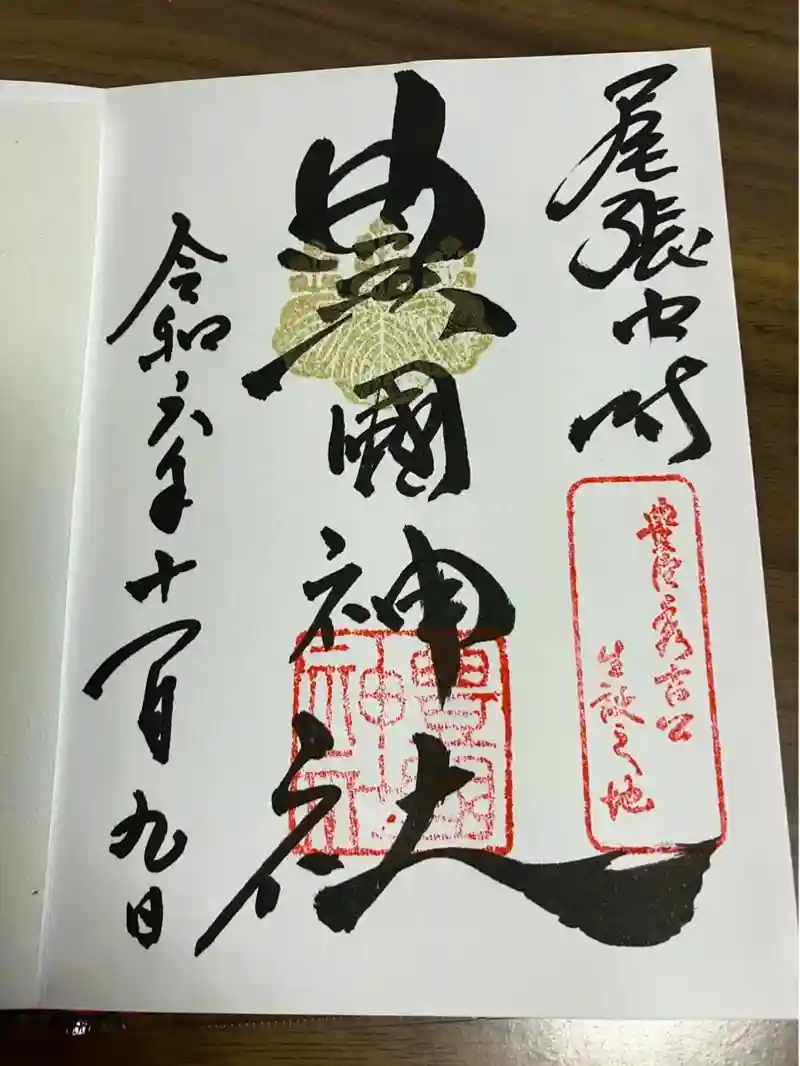 尾張中村
豊臣秀吉公
生誕之地
豊國神社
豊國
神社
令和六年十一月九日